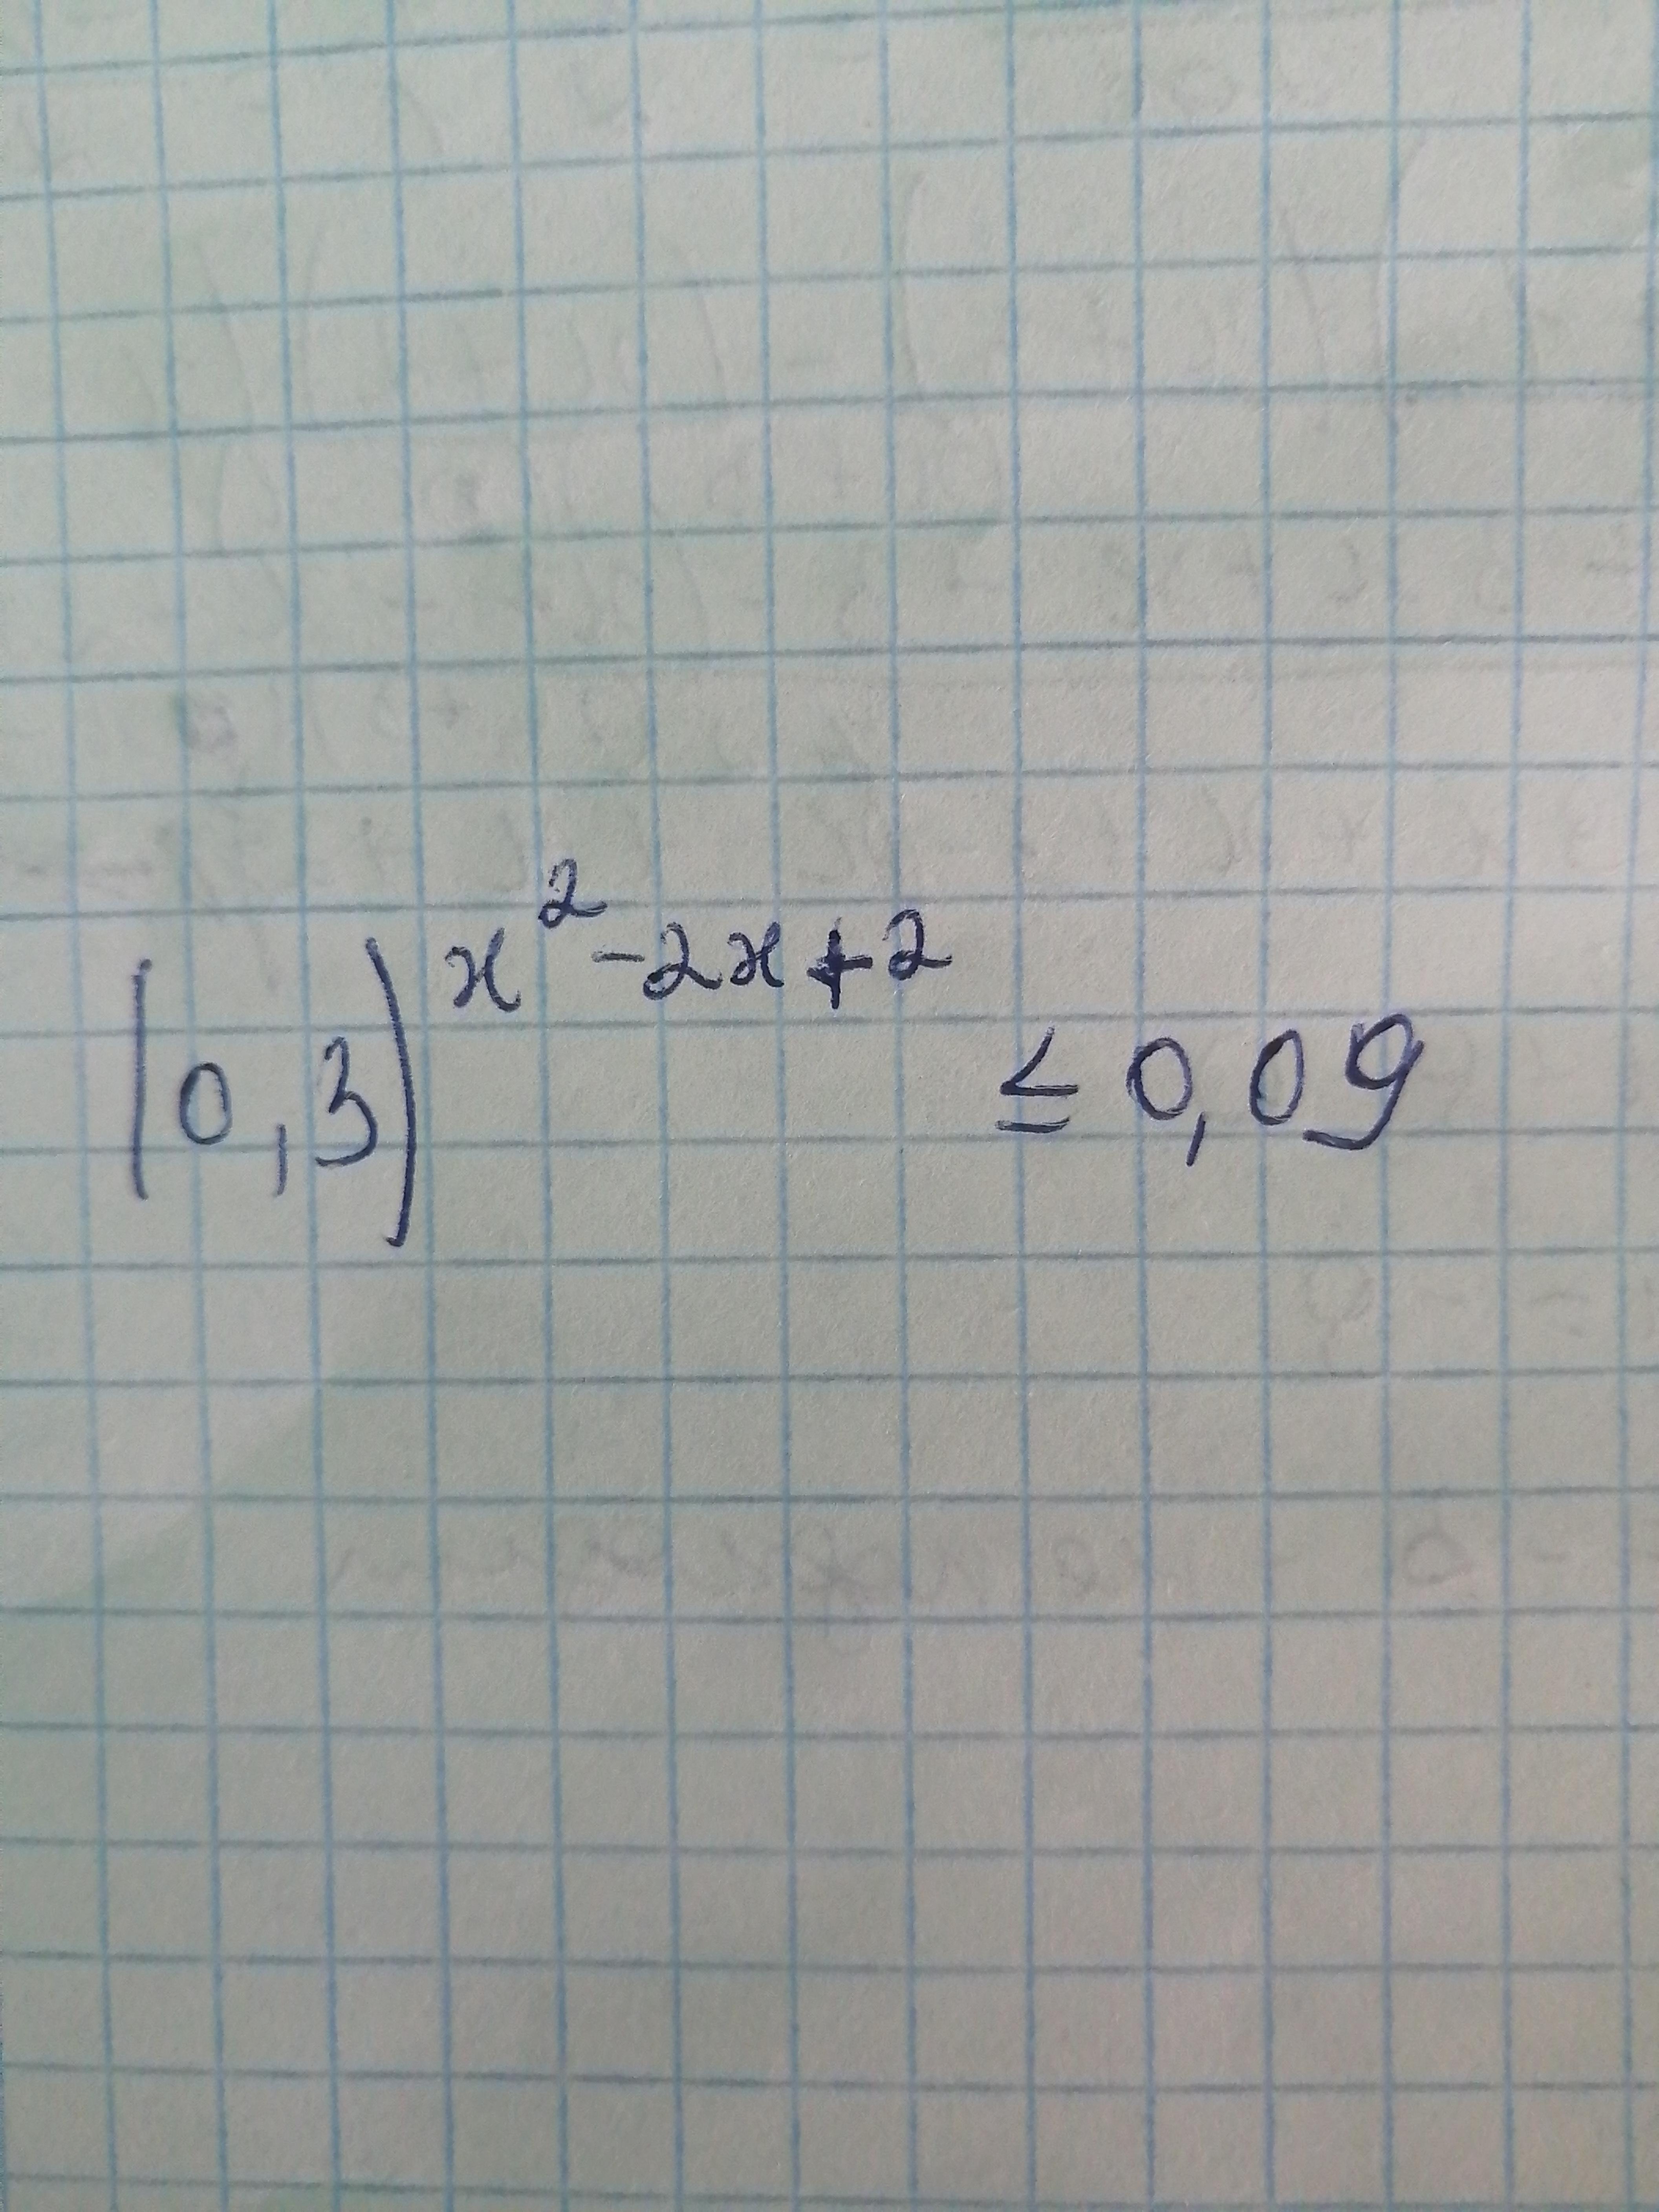 (0,3)^{x^2-2x+2} ≤ 0,09